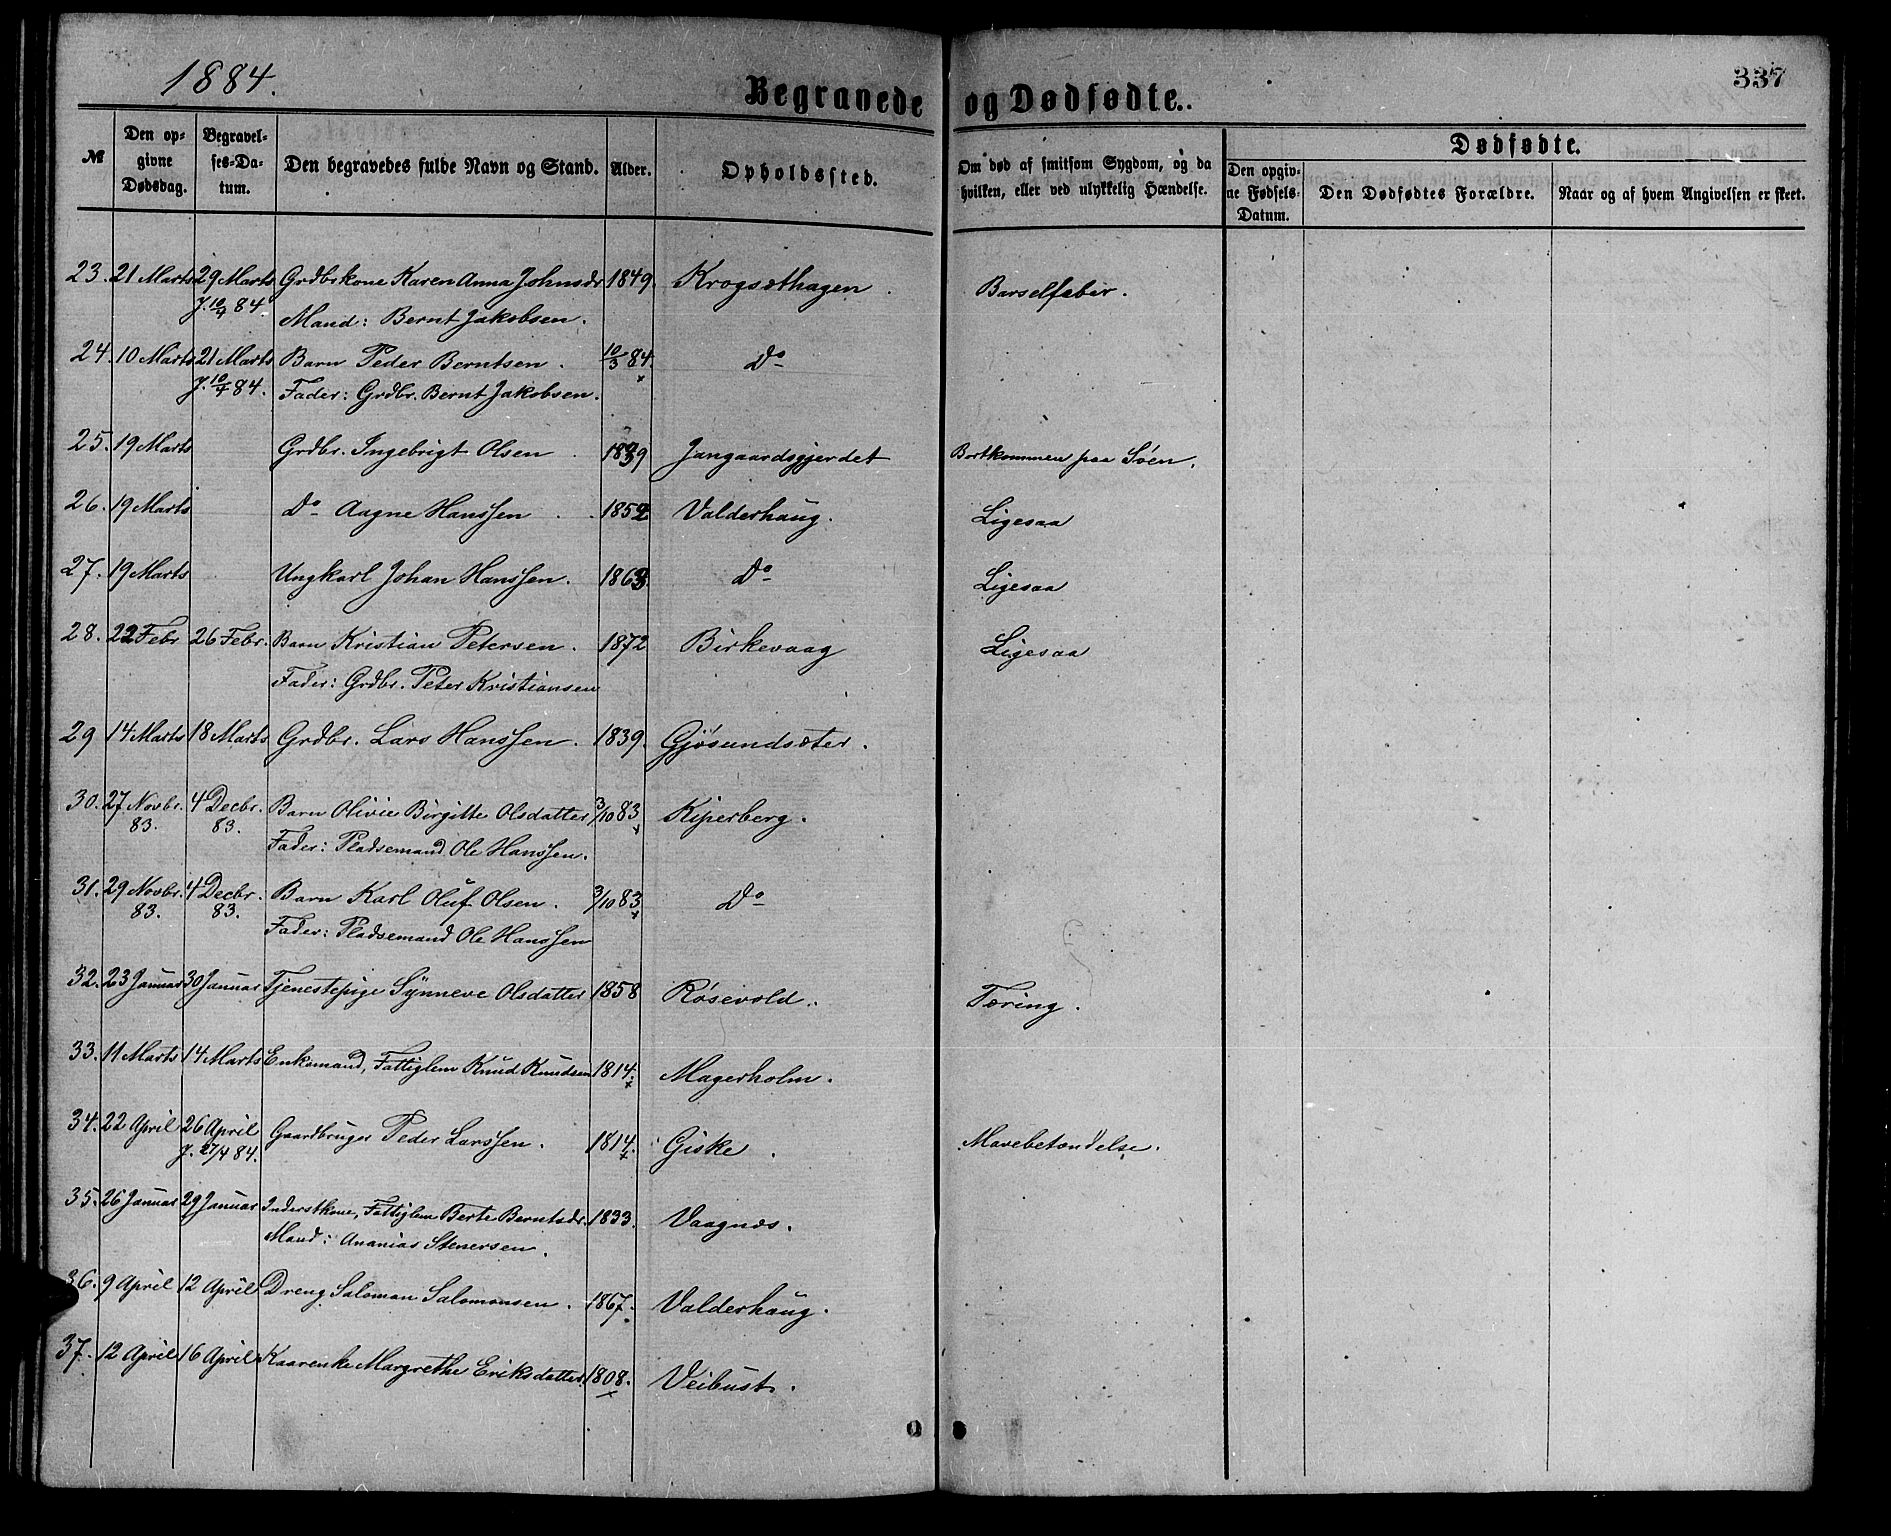 1884.
337
Begravede og Dødfødte.
№ Den opgivne Dødsdag. Begravelses-Datum. Den begravedes fulde Navn og Stand. Alder. Opholdssted. Om død af smitsom Sygdom, og da hvilken, eller ved ulykkelig Hændelse. Dødfødte. Den opgivne Fødsels-Datum. Den Dødfødtes Forældre. Naar og af hvem Angivelsen er skeet.
23. 21 Marts 29 Marts Grdbrkone Karen Anna Johnsdr 1849. Krogsæthagen. Barselfeber.
J. 10/4 84. Mand: Bernt Jakobsen.
24. 10 Marts 21 Marts Barn Peder Berntsen. 10/3 84. Do
J. 10/4 84. Fader: Grdbr. Bernt Jakobsen.
25. 19 Marts Grdbr. Ingebrigt Olsen 1839 Jangaardsgjerdet Bortkommen paa Søen.
26. 19 Marts Do Aagne Hanssen 1852 Valderhaug. Ligesaa
27. 19 Marts Ungkarl Johan Hanssen. 1863. Do Ligesaa
28. 22 Febr 26 Febr. Barn Kristian Petersen. 1872 Birkevaag Ligesaa
Fader: Grdbr. Peter Kristiansen
29 14 Marts 18 Marts Grdbr. Lars Hanssen. 1839. Gjøsundsæter.
30. 27 Novbr. 83. 4 Decbr. 83. Barn Olivie Birgitte Olsdatter 3/10 83 Kiperberg.
Fader: Pladsemand Ole Hanssen.
31. 29 Novbr. 83. 4 Decbr. 83. Barn Karl Oluf Olsen. 3/10 83 Do
Fader: Pladsemand Ole Hanssen
32. 23 Januar 30 Januar Tjenestepige Synneve Olsdatter 1858 Røsevold. Tæring.
33. 11 Marts 14 Marts Enkemand, Fattiglem Knud Knudsen 1814. Magerholm.
34. 22 April 26 April Gaardbruger Peder Larssen. 1814. Giske. Mavebetændelse.
J. 27/4 84.
35. 26 Januar 29 Januar Inderstkone, Fattiglem Berte Berntsdr. 1833. Vaagnæs.
Mand: Ananias Stenersen.
36. 9 April 12 April Dreng Salomon Salomonsen. 1867. Valderhaug.
37. 12 April 16 April Kaarenke Margrethe Eriksdatter 1808. Veibust.